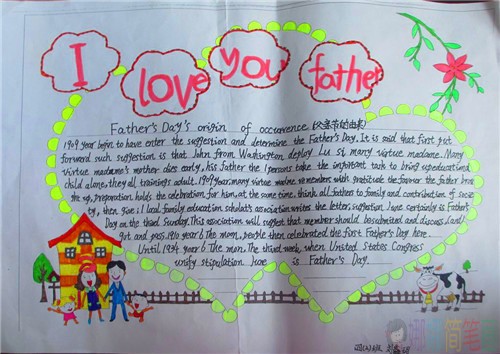 I love you father
Father's Day's origin of occurrence (父亲节的由来)
1909 year begin to have enter the suggestion and determine the Father's Day. It is said that first put
forward such suggestion is that John from Washington deploy Lu si many virtue madame. Many
virtue madame's mother dies early, his father 1 persons take the important task to bring up educational
child alone, they all trainings adult. 1909 year, many virtue madame remember with gratitude the favour the father bring
me up, preparation holds the celebration for him, at the same time, think all fathers to family and contribution of socie
ty, then give 1 local family education scholars association writes the letter, suggestion June certainly is Father's
Day on the third Sunday. This association will suggest that member should be submitted and discuss, and
got and pass. 1910 year 6 The mon, people then celebrated the first Father's Day here.
Until 1934 year 6 The mon. The third week, when United States Congress
unify stipulation June is Father's Day.
四(2)班
简笔